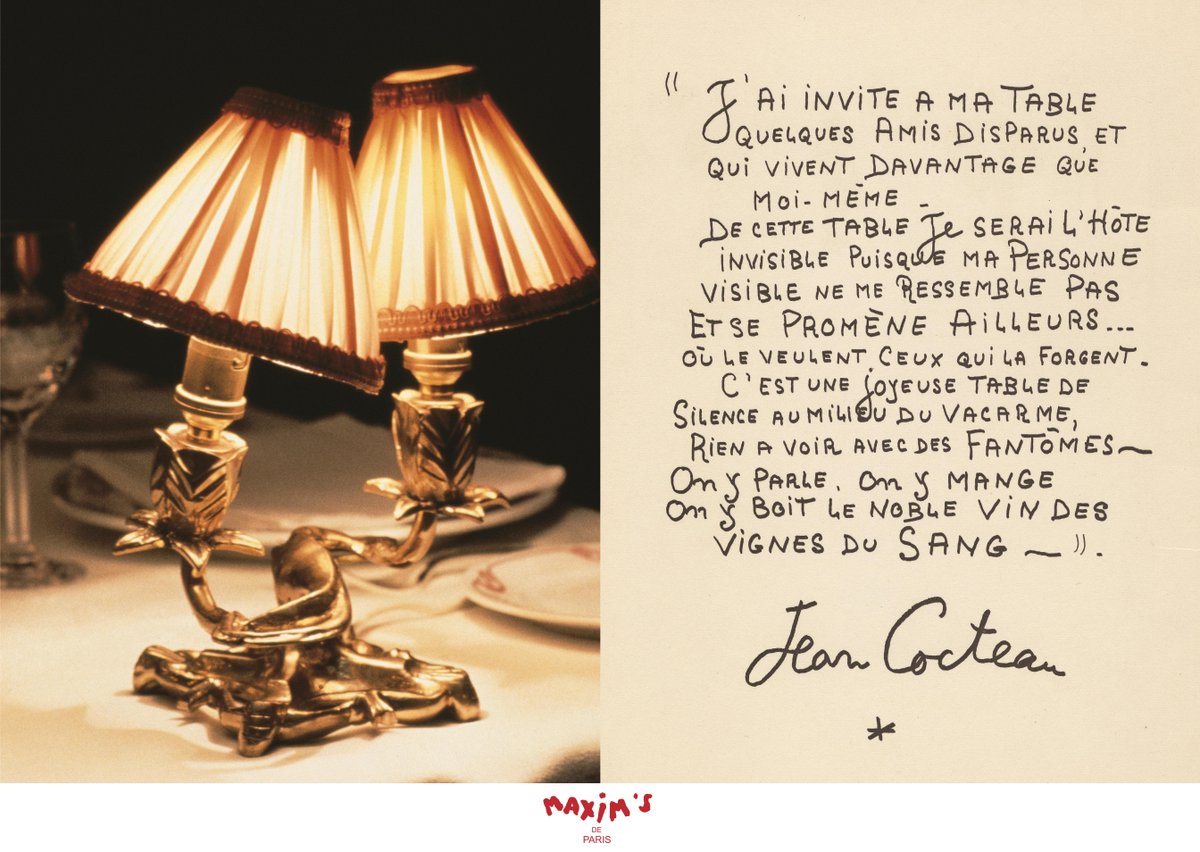 " J'AI INVITE A MA TABLE
QUELQUES AMIS DISPARUS, ET
QUI VIVENT DAVANTAGE QUE
MOI-MÊME -
DE CETTE TABLE JE SERAI L'HÔTE
INVISIBLE PUISQUE MA PERSONNE
VISIBLE NE ME RESSEMBLE PAS
ET SE PROMÈNE AILLEURS...
OÙ LE VEULENT CEUX QUI LA FORGENT.
C'EST UNE JOYEUSE TABLE DE
SILENCE AU MILIEU DU VACARME,
RIEN A VOIR AVEC DES FANTÔMES~
ON Y PARLE. ON Y MANGE
ON Y BOIT LE NOBLE VIN DES
VIGNES DU SANG ~ ".
Jean Cocteau
*
MAXIM'S
DE
PARIS